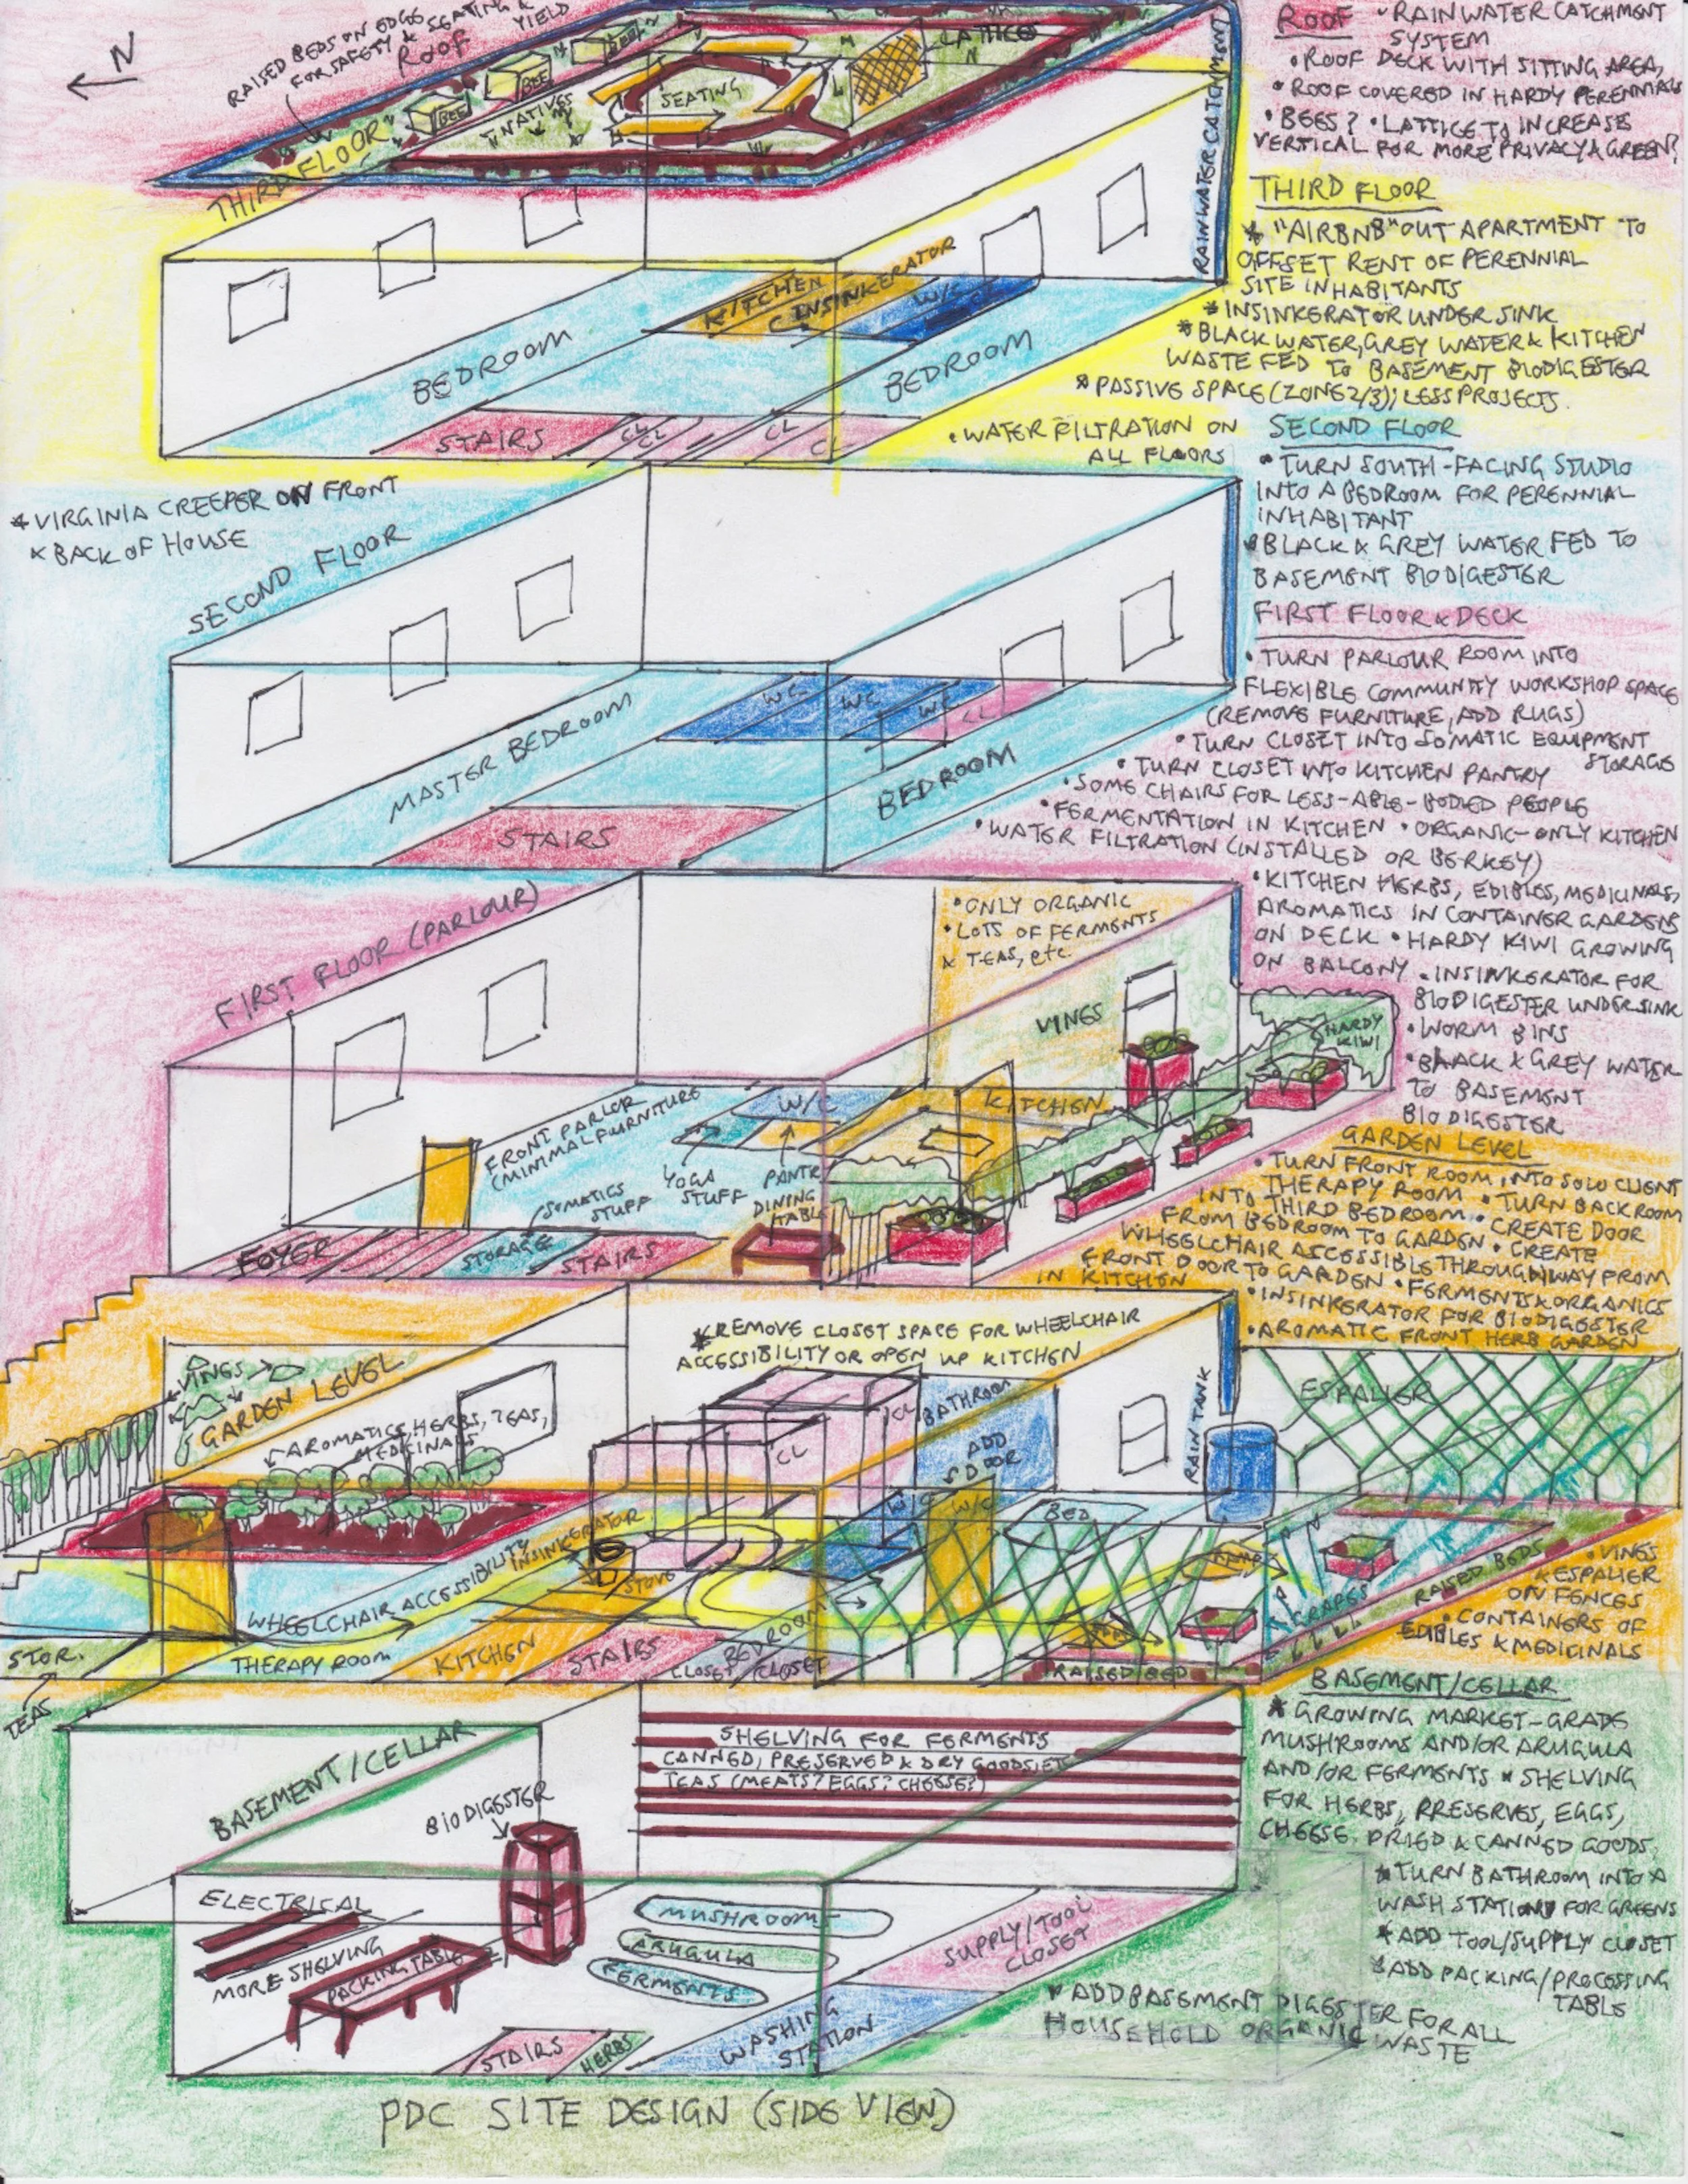 N
RAISED BEDS ON EDGES
FOR SAFETY & SEATING &
YIELD
ROOF
BEE
BEE
BEE
NATIVES
SEATING
LATTICE
RAINWATER CATCHMENT
ROOF
• RAINWATER CATCHMENT
SYSTEM
• ROOF DECK WITH SITTING AREA,
• ROOF COVERED IN HARDY PERENNIALS
• BEES? • LATTICE TO INCREASE
VERTICAL FOR MORE PRIVACY & GREEN?
THIRD FLOOR
KITCHEN
C INSINKERATOR
W/C
BEDROOM
BEDROOM
STAIRS
CL
CL
CL
CL
THIRD FLOOR
* "AIRBNB" OUT APARTMENT TO
OFFSET RENT OF PERENNIAL
SITE INHABITANTS
* INSINKERATOR UNDER SINK
* BLACK WATER, GREY WATER & KITCHEN
WASTE FED TO BASEMENT BIODIGESTER
* PASSIVE SPACE (ZONE 2/3); LESS PROJECTS.
• WATER FILTRATION ON
ALL FLOORS
* VIRGINIA CREEPER ON FRONT
& BACK OF HOUSE
SECOND FLOOR
MASTER BEDROOM
WC
WC
WC
CL
BEDROOM
STAIRS
SECOND FLOOR
• TURN SOUTH-FACING STUDIO
INTO A BEDROOM FOR PERENNIAL
INHABITANT
• BLACK & GREY WATER FED TO
BASEMENT BIODIGESTER
FIRST FLOOR & DECK
• TURN PARLOUR ROOM INTO
FLEXIBLE COMMUNITY WORKSHOP SPACE
(REMOVE FURNITURE, ADD RUGS)
• TURN CLOSET INTO SOMATIC EQUIPMENT
STORAGE
• TURN CLOSET INTO KITCHEN PANTRY
• SOME CHAIRS FOR LESS-ABLE-BODIED PEOPLE
• FERMENTATION IN KITCHEN • ORGANIC-ONLY KITCHEN
• WATER FILTRATION (INSTALLED OR BERKEY)
• KITCHEN HERBS, EDIBLES, MEDICINALS,
AROMATICS IN CONTAINER GARDENS
ON DECK • HARDY KIWI GROWING
ON BALCONY • INSINKERATOR FOR
BIODIGESTER UNDER SINK
• WORM BINS
• BLACK & GREY WATER
TO BASEMENT
BIODIGESTER
FIRST FLOOR (PARLOUR)
• ONLY ORGANIC
• LOTS OF FERMENTS
& TEAS, etc.
VINES
HARDY
KIWI
FRONT PARLOR
(MINIMAL FURNITURE
W/C
KITCHEN
YOGA
STUFF
PANTRY
DINING
TABLE
SOMATICS
STUFF
FOYER
STORAGE
STAIRS
GARDEN LEVEL
• TURN FRONT ROOM INTO SOLO CLIENT
THERAPY ROOM • TURN BACK ROOM
INTO THIRD BEDROOM • CREATE DOOR
FROM BEDROOM TO GARDEN • CREATE
WHEELCHAIR ACCESSIBLE THROUGHWAY FROM
FRONT DOOR TO GARDEN • FERMENTS & ORGANICS
IN KITCHEN
• INSINKERATOR FOR BIODIGESTER
• AROMATIC FRONT HERB GARDEN
* REMOVE CLOSET SPACE FOR WHEELCHAIR
ACCESSIBILITY OR OPEN UP KITCHEN
VINES
GARDEN LEVEL
AROMATICS, HERBS, TEAS,
MEDICINALS
CL
CL
BATHROOM
ADD
DOOR
RAIN TANK
ESPALIER
INSINKERATOR
STOVE
W/C
W/C
BED
WHEELCHAIR ACCESSIBILITY
THERAPY ROOM
KITCHEN
STAIRS
BEDROOM
CLOSET
CLOSET
RAMP
RAMP
GRAPES
RAISED BEDS
RAISED BED
STOR.
TEAS
• VINES
& ESPALIER
ON FENCES
• CONTAINERS OF
EDIBLES & MEDICINALS
BASEMENT/CELLAR
SHELVING FOR FERMENTS
CANNED, PRESERVED & DRY GOODS, ETC
TEAS (MEATS? EGGS? CHEESE?)
BIODIGESTER
ELECTRICAL
MORE SHELVING
PACKING TABLE
MUSHROOMS
ARUGULA
FERMENTS
SUPPLY/TOOL
CLOSET
WASHING
STATION
STAIRS
HERBS
BASEMENT/CELLAR
* GROWING MARKET-GRADE
MUSHROOMS AND/OR ARUGULA
AND/OR FERMENTS * SHELVING
FOR HERBS, PRESERVES, EGGS,
CHEESE, DRIED & CANNED GOODS.
* TURN BATHROOM INTO A
WASH STATION FOR GREENS
* ADD TOOL/SUPPLY CLOSET
* ADD PACKING/PROCESSING
TABLE
* ADD BASEMENT DIGESTER FOR ALL
HOUSEHOLD ORGANIC WASTE
PDC SITE DESIGN (SIDE VIEW)